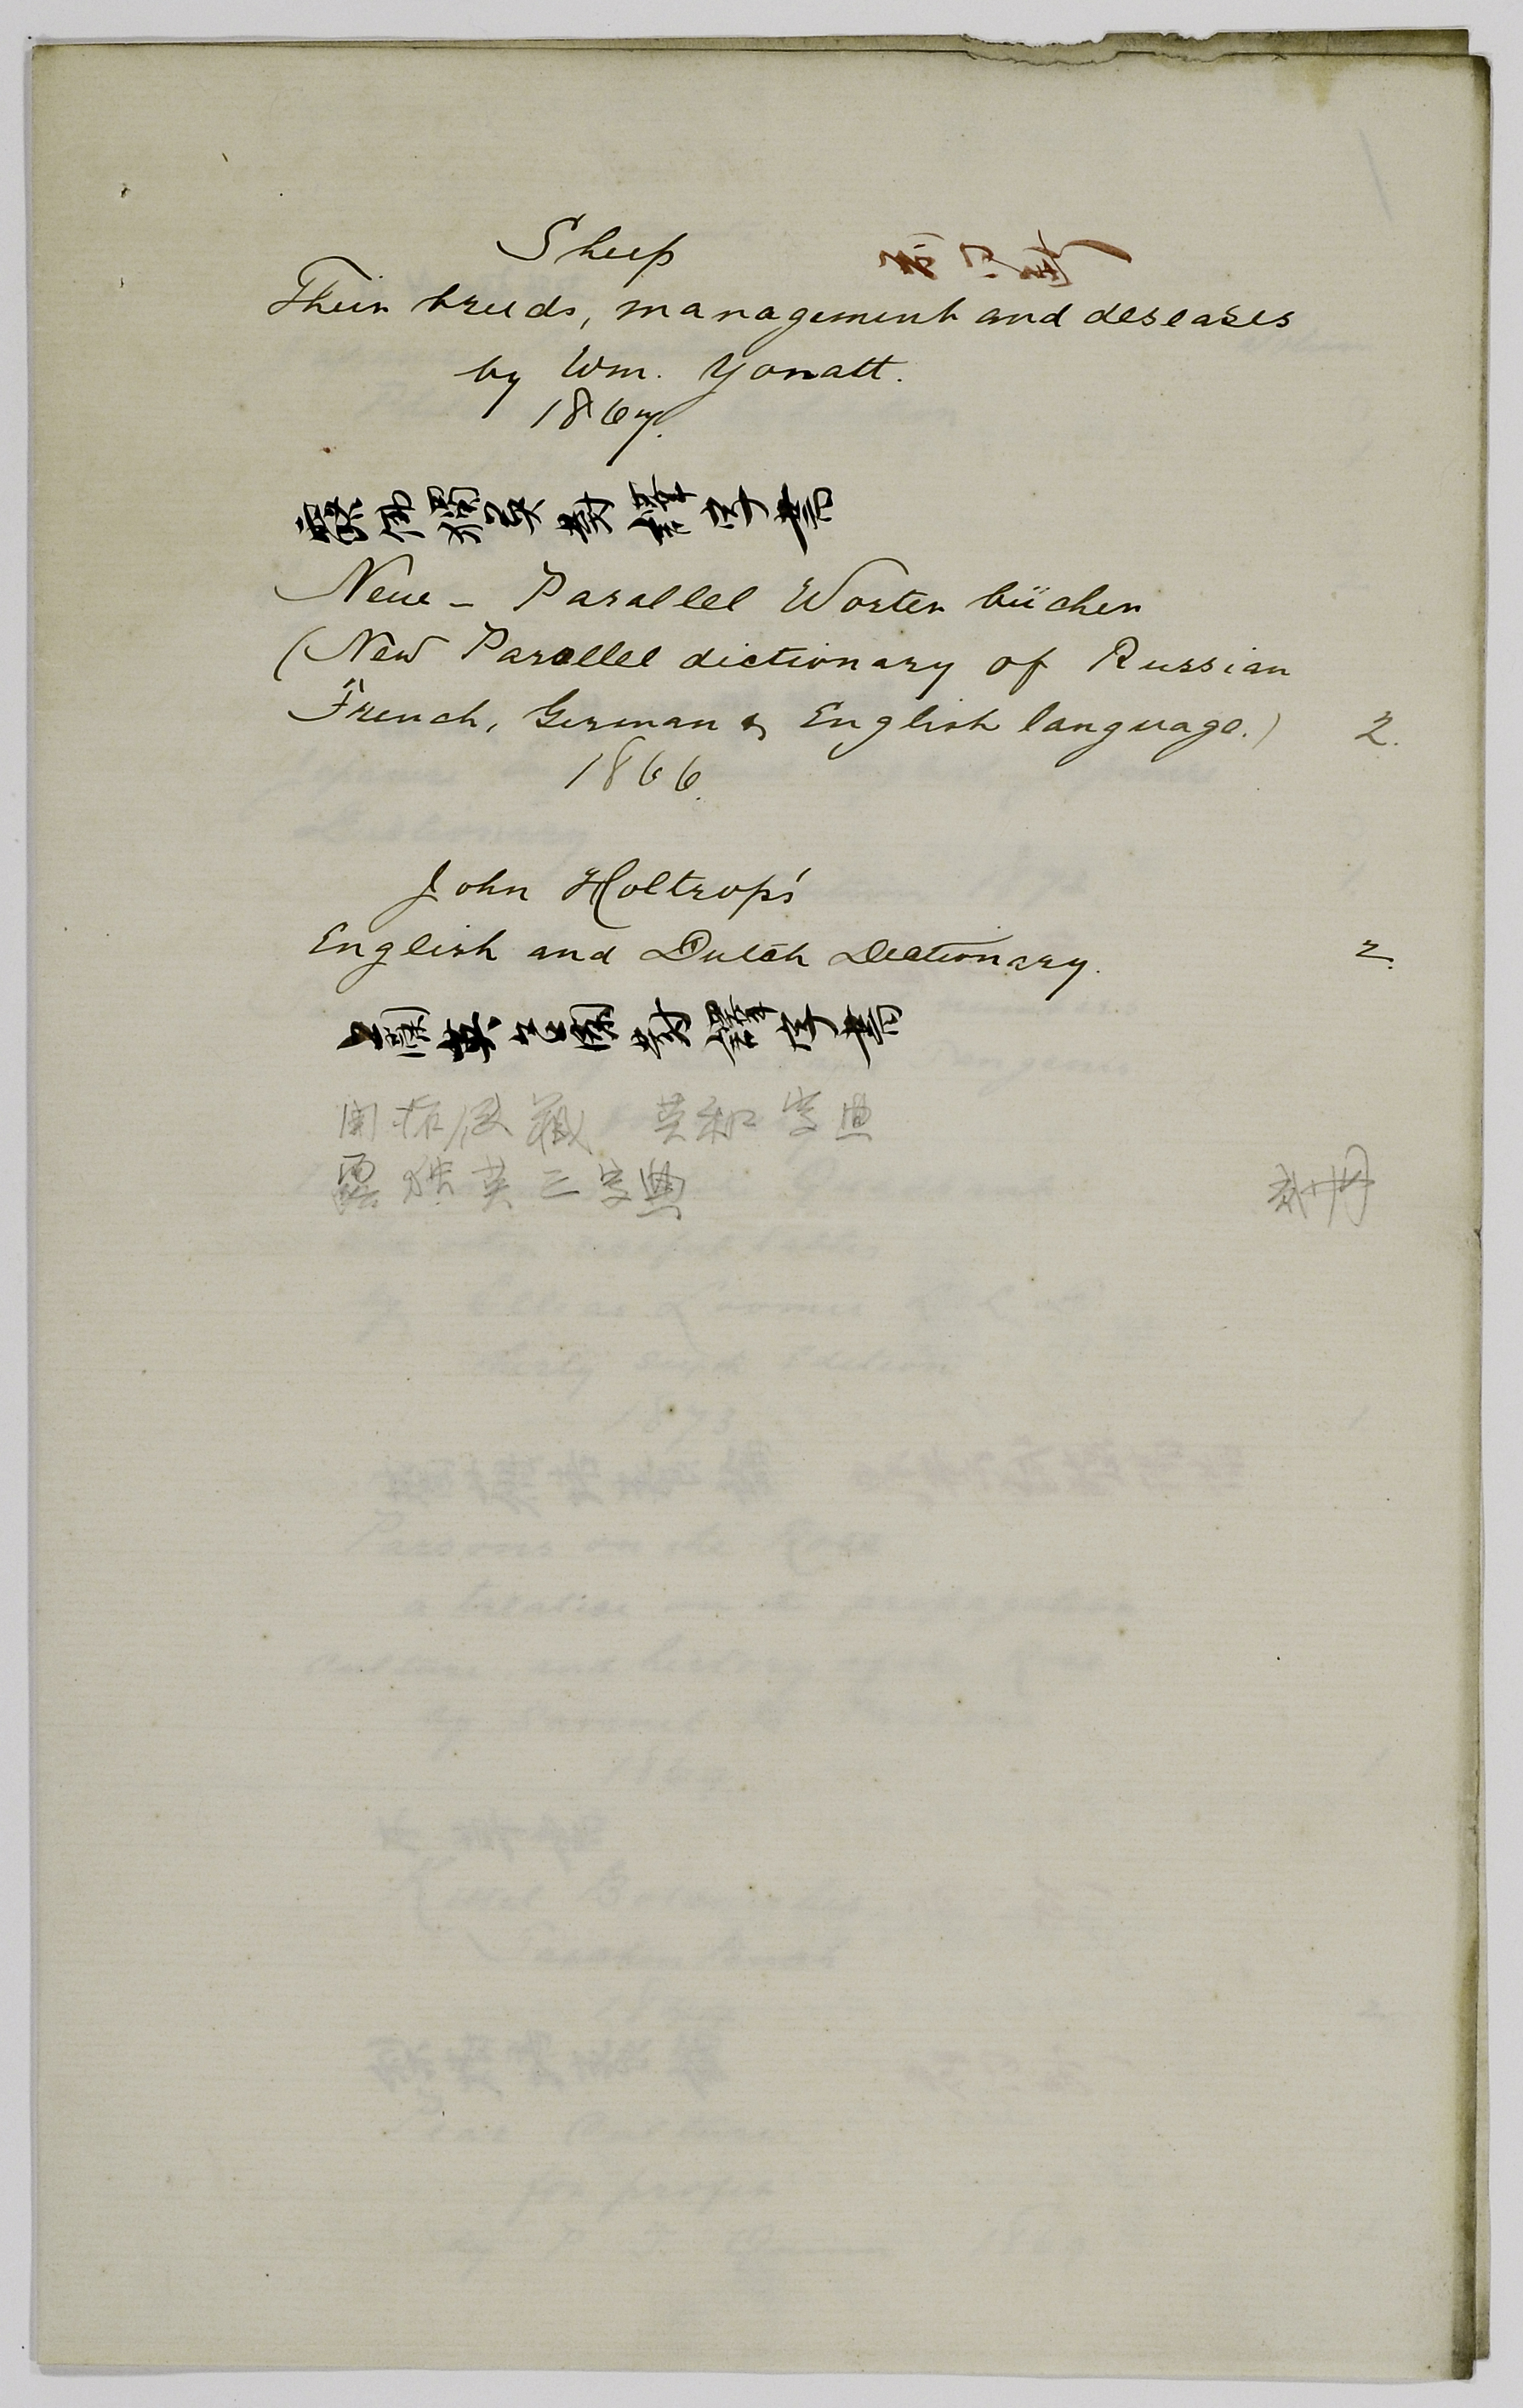 Sheep
Their breeds, management and deseases
by Wm. Yonatt.
1867.
対譯字書
Neue - Parallel Worter bücher
(New Parallel dictionary of Russian
French, German & English language.) 2.
1866.
John Holtrop's
English and Dutch Dictionary. 2.
對譯字書
開拓使蔵 英和字典
露独英三字典 弐冊